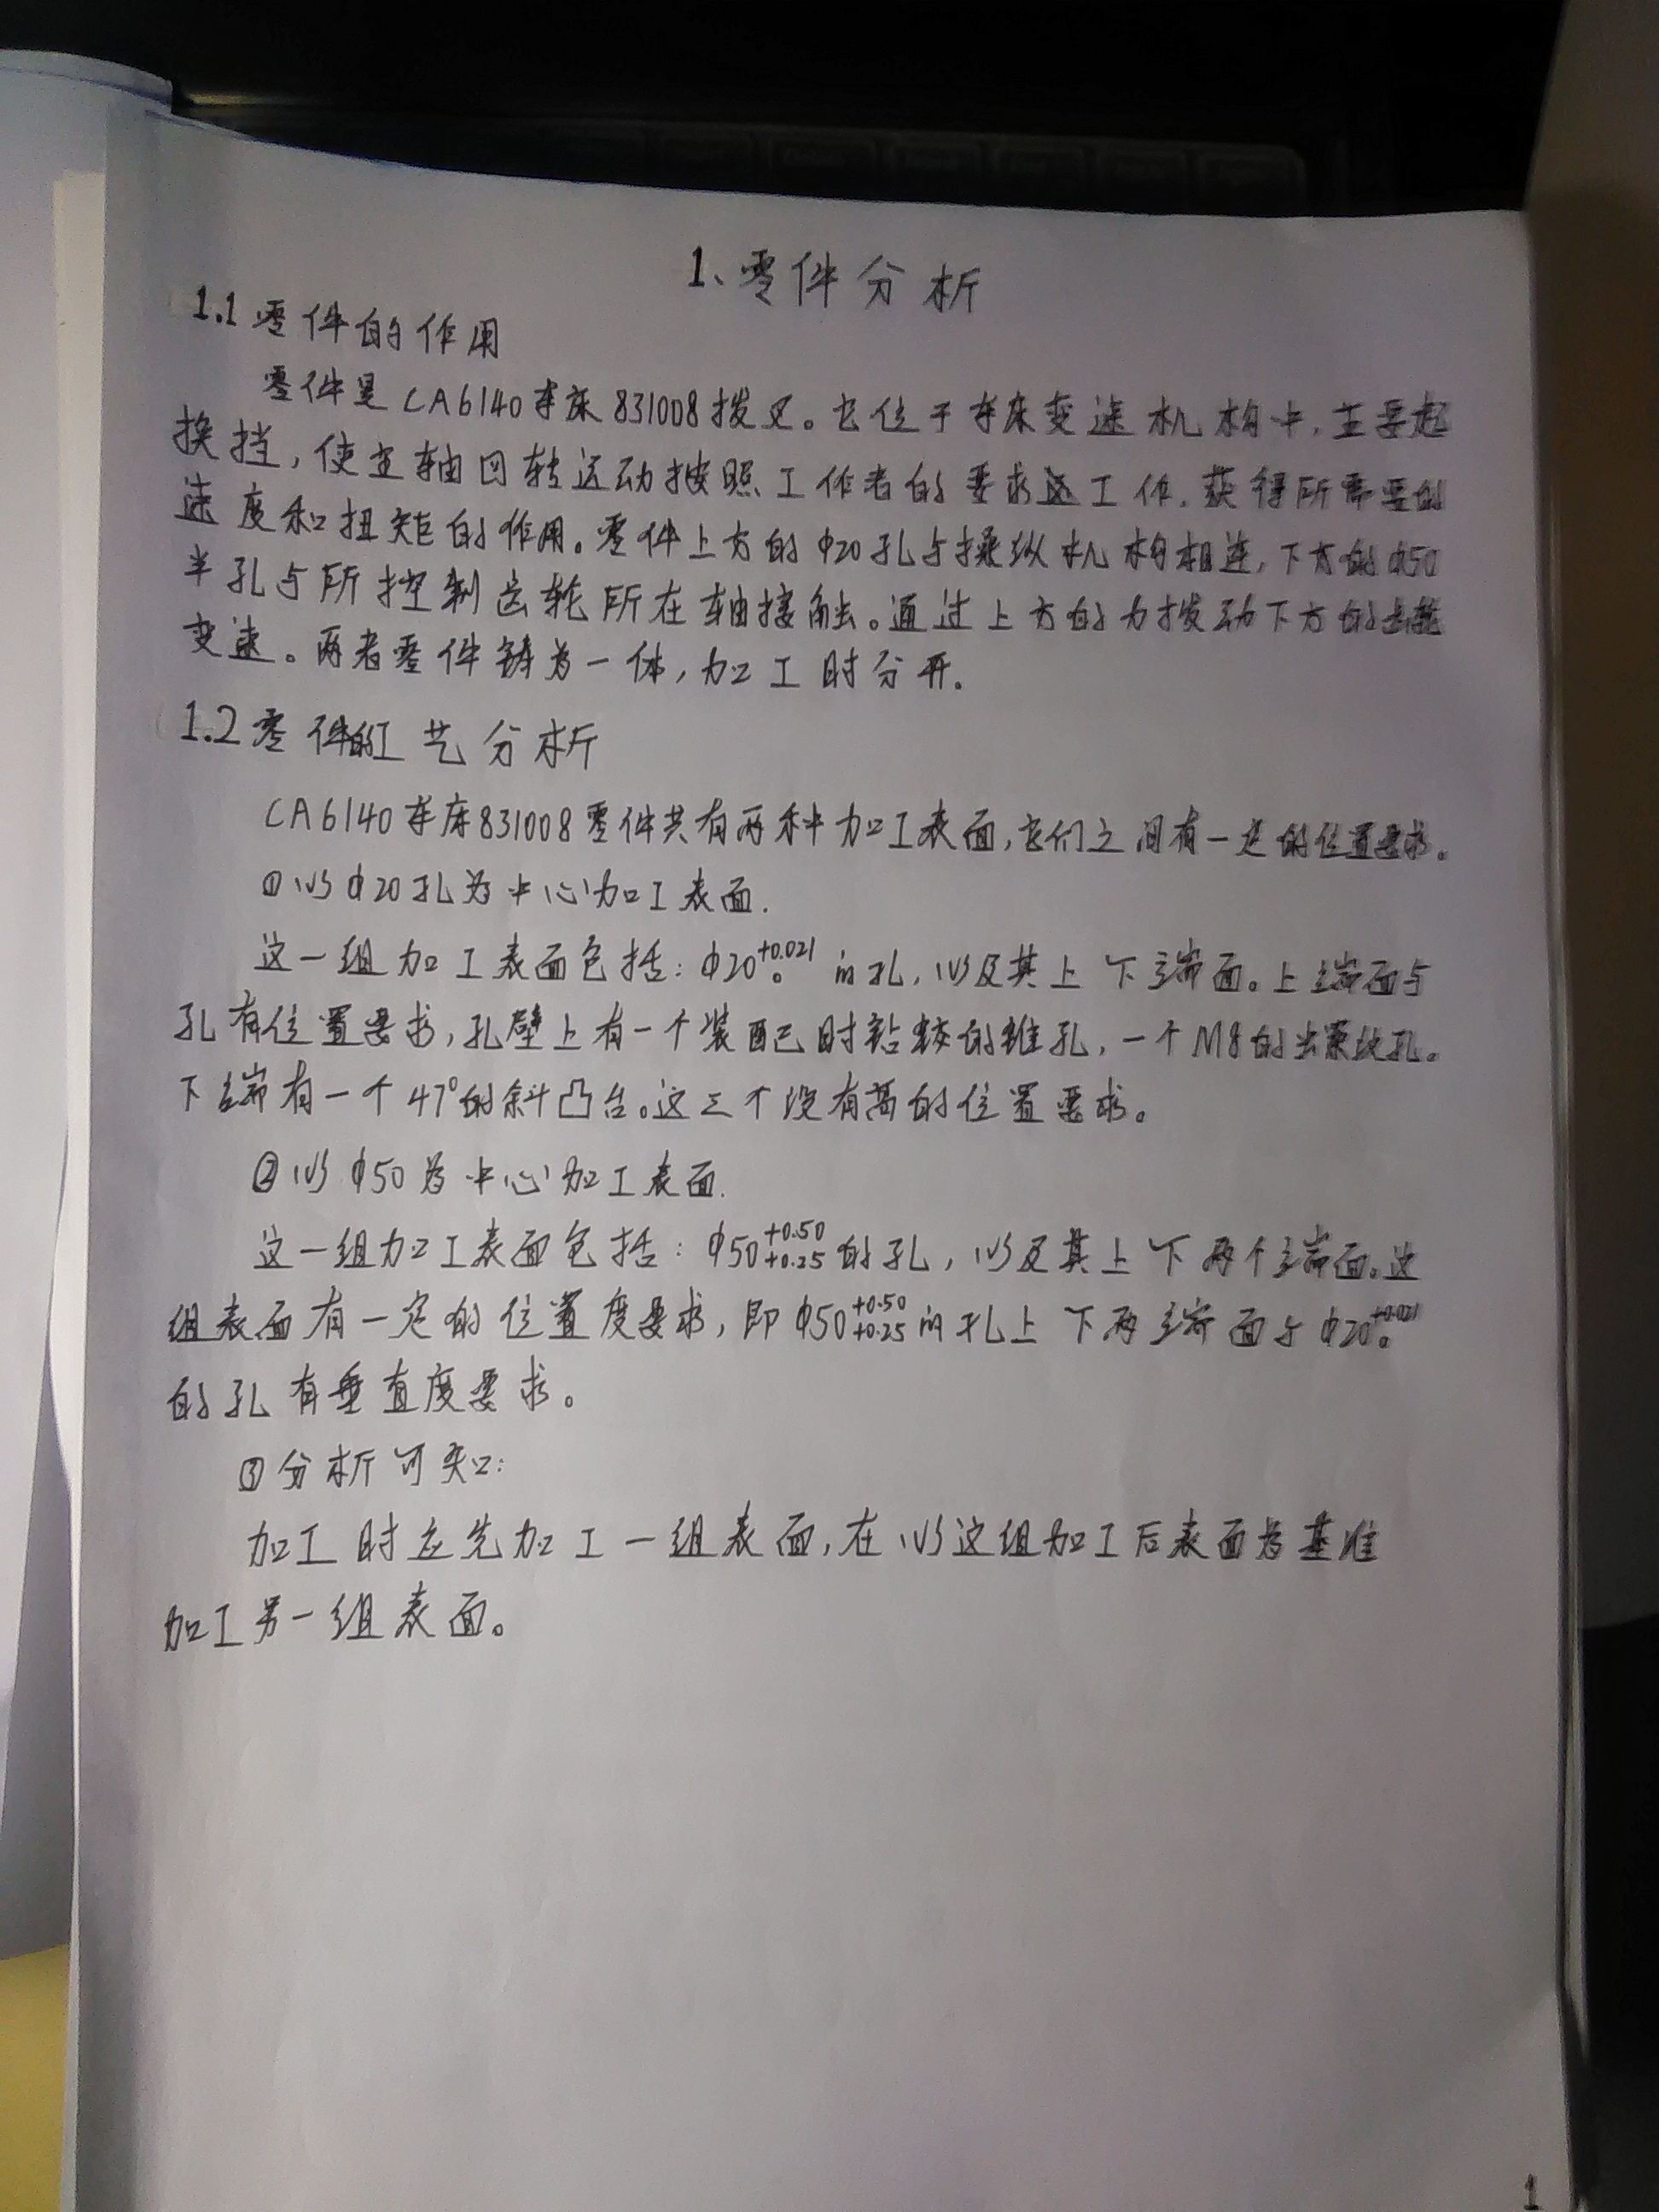 1、零件分析
1.1 零件的作用
零件是CA6140车床831008拨叉。它位于车床变速机构中,主要起
换挡,使主轴回转运动按照工作者的要求工作,获得所需要的
速度和扭矩的作用。零件上方的φ20孔与操纵机构相连,下方的φ50
半孔与所控制齿轮所在轴接触。通过上方的力拨动下方的齿轮
变速。两者零件铸为一体,加工时分开.
1.2 零件的工艺分析
CA6140车床831008零件共有两种加工表面,它们之间有一定的位置要求。
①以φ20孔为中心加工表面.
这一组加工表面包括:φ20+0.021 0的孔,以及其上下端面。上端面与
孔有位置要求,孔壁上有一个装配时钻铰的锥孔,一个M8的螺纹孔。
下端有一个47°的斜凸台。这三个没有高的位置要求。
②以φ50为中心加工表面.
这一组加工表面包括:φ50+0.50 +0.25的孔,以及其上下两个端面。这
组表面有一定的位置度要求,即φ50+0.50 +0.25的孔上下两端面与φ20+0.021 0
的孔有垂直度要求。
③分析可知:
加工时应先加工一组表面,在以这组加工后表面为基准
加工另一组表面。
1